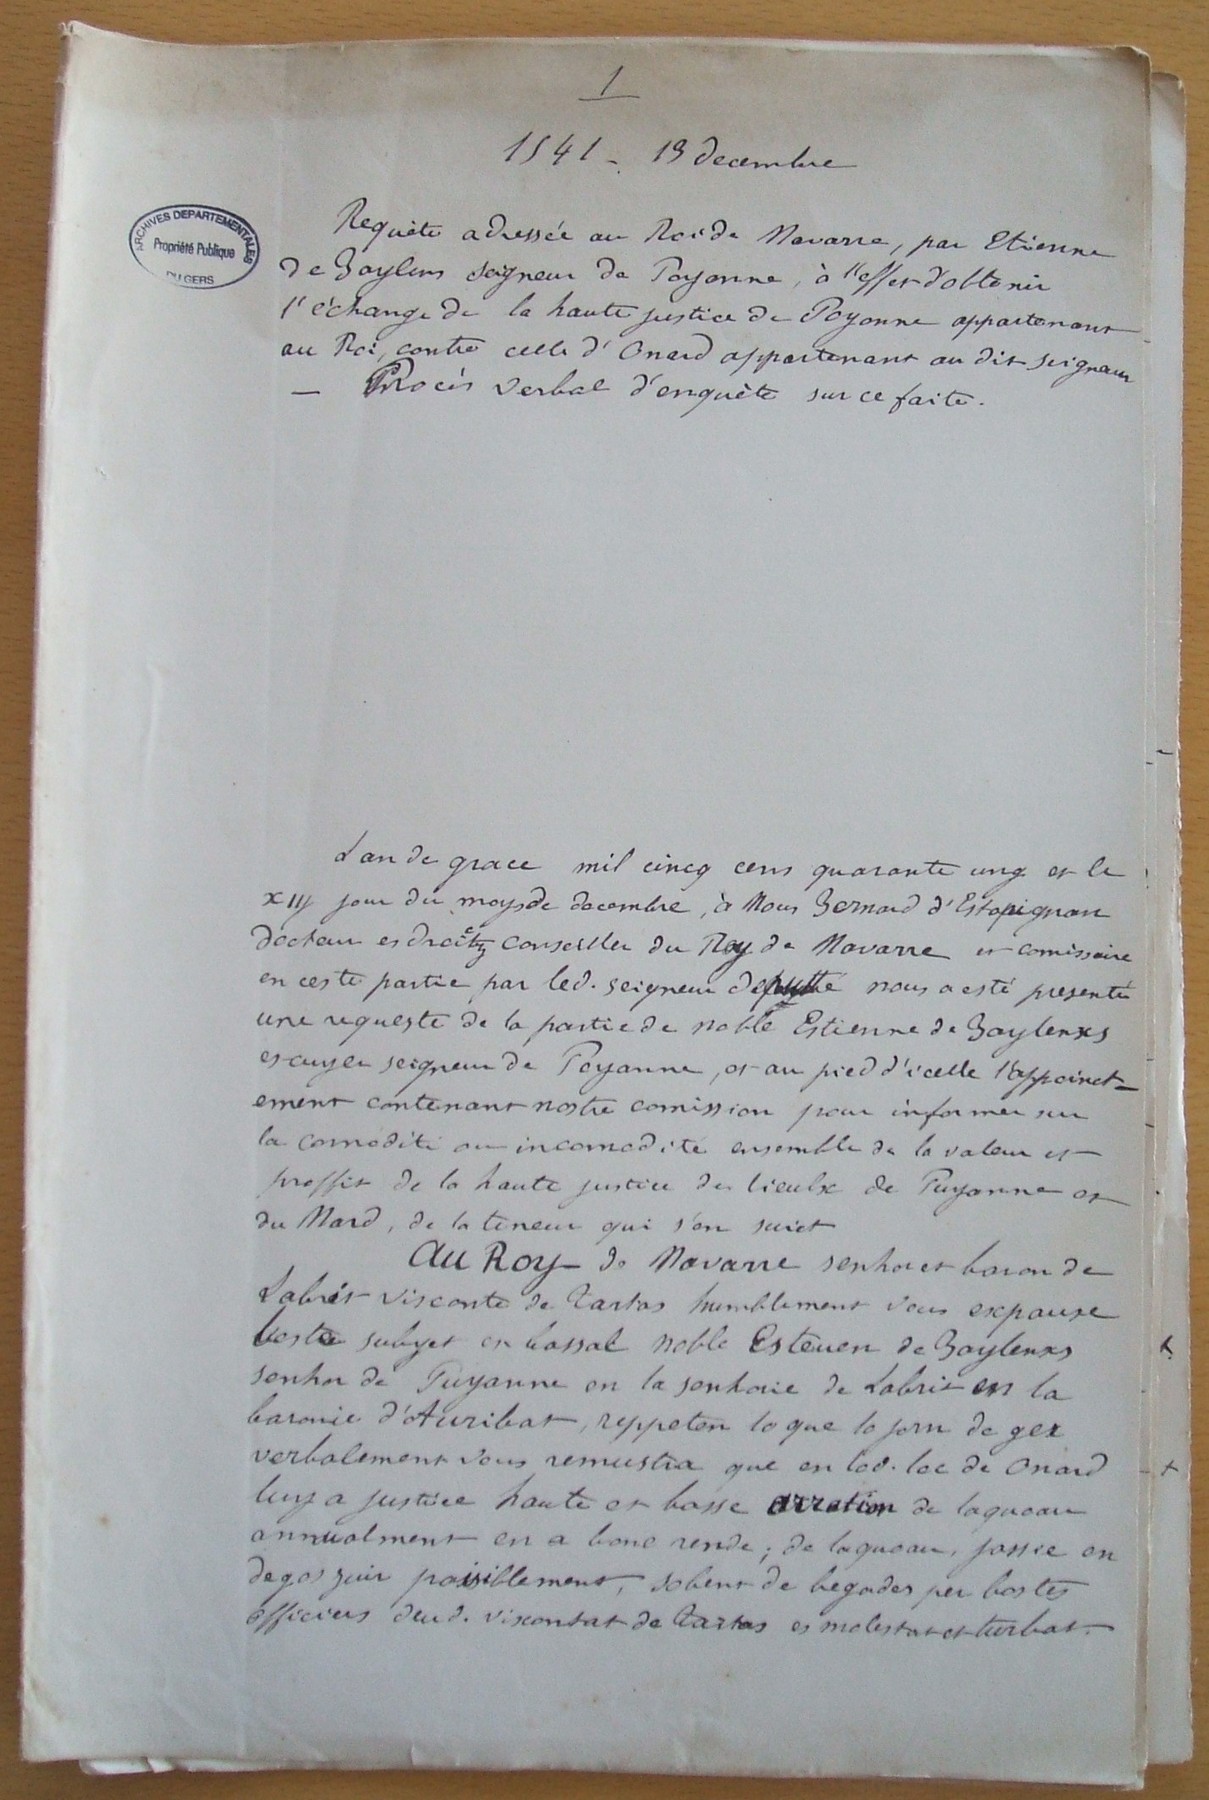 1
1541 - 13 decembre
ARCHIVES DEPARTEMENTALES
Propriété Publique
DU GERS
Requête adressée au Roi de Navarre, par Etienne
de Baylens seigneur de Poyanne, à l'effet d'obtenir
l'échange de la haute justice de Poyanne appartenant
au Roi, contre celle d'Onard appartenant au dit seigneur
— Procès verbal d'enquête sur ce faite.
L'an de grace mil cincq cens quarante ung et le
xiij jour du moys de decembre, à Nous Bernard d'Estopignan
docteur es droictz conseiller du Roy de Navarre et comissaire
en ceste partie par led. seigneur deputté nous a esté presenté
une requeste de la partie de noble Estienne de Baylenxs
escuyer seigneur de Poyanne, et au pied d'icelle l'appoinct-
ement contenant nostre comission pour informer sur
la comodité ou incomodité ensemble de la valeur et
proffit de la haute justice des lieulx de Puyanne et
du Nard, de la teneur qui s'en suict
Au Roy de Navarre senhor et baron de
Labrit visconte de Tartas humblement vous expause
boste subget en bassal noble Esteven de Baylenxs
senhor de Puyanne en la senhorie de Labrit en la
baronie d'Auribat, reppeten lo que lo jorn de ger
verbalement vous remustra que en lod. loc de Onard
luy a justice haute et basse de laqueau
annualment en a bone rende; de laqueau, jassie en
degos juir paisiblement, sobent de begades per bostes
officiers deud. viscontat de Tartas es molestat et turbat.